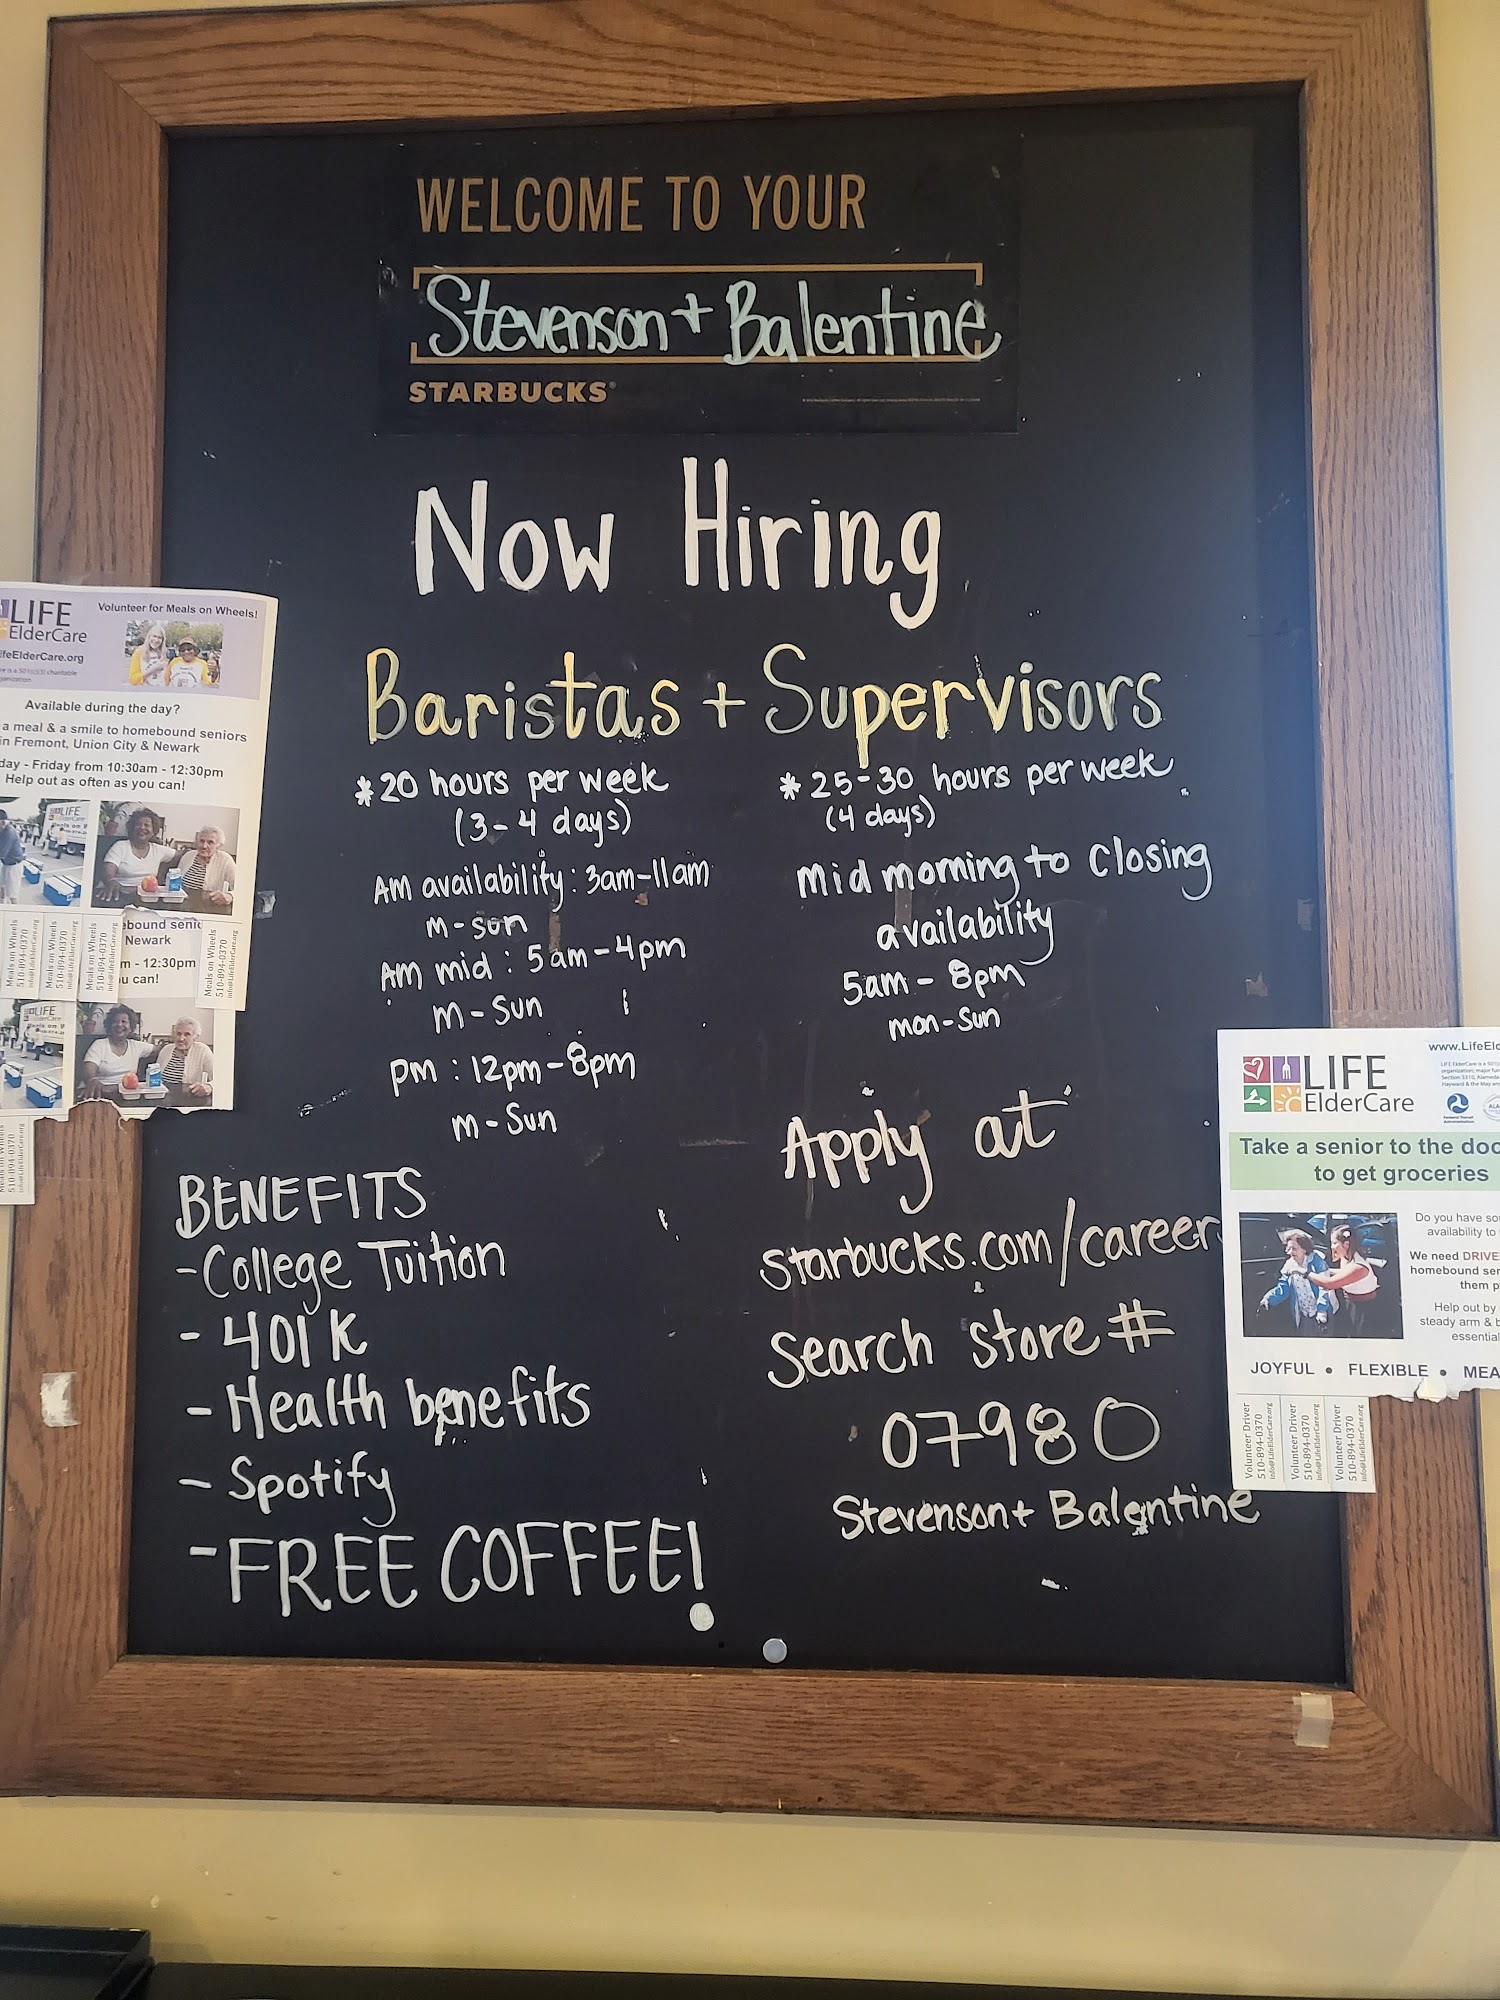 WELCOME TO YOUR
Stevenson + Balentine
STARBUCKS®
Now Hiring
Baristas + Supervisors
* 20 hours per week
(3-4 days)
Am availability: 3am-11am
M-sun
Am mid: 5am-4pm
M-Sun
pm: 12pm-8pm
M-Sun
* 25-30 hours per week
(4 days)
Mid morning to closing
availability
5am- 8pm
mon-Sun
Apply at
starbucks.com/career
Search store #
07980
Stevenson+ Balentine
BENEFITS
-College Tuition
- 401K
- Health benefits
- Spotify
- FREE COFFEE!
LIFE
ElderCare
Volunteer for Meals on Wheels!
ifeElderCare.org
Available during the day?
a meal & a smile to homebound seniors
in Fremont, Union City & Newark
day - Friday from 10:30am - 12:30pm
Help out as often as you can!
LIFE
Meals on Wheels
510-894-0370
info@LifeElderCare.org
Meals on Wheels
510-894-0370
info@LifeElderCare.org
Meals on Wheels
510-894-0370
info@LifeElderCare.org
ebound senio
Newark
m - 12:30pm
u can!
Meals on Wheels
510-894-0370
info@LifeElderCare.org
LIFE
Meals on Wheels
510-894-0370
www.LifeEld
LIFE
ElderCare
Take a senior to the doc
to get groceries
Do you have so
availability to
We need DRIVE
homebound ser
them p
Help out by
steady arm & b
essential
JOYFUL • FLEXIBLE • MEA
Volunteer Driver
510-894-0370
info@LifeElderCare.org
Volunteer Driver
510-894-0370
info@LifeElderCare.org
Volunteer Driver
510-894-0370
info@LifeElderCare.org